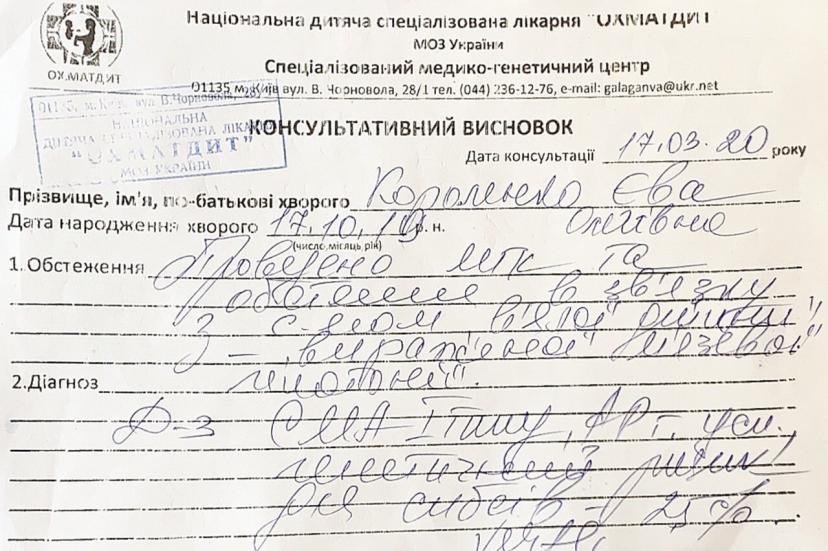 Національна дитяча спеціалізована лікарня "ОХМАТДИТ"
МОЗ України
Спеціалізований медико-генетичний центр
ОХМАТДИТ
01135 м. Київ вул. В. Чорновола, 28/1 тел. (044) 236-12-76, e-mail: galaganva@ukr.net
01135, м. Київ, вул. В.Чорновола, 28/1
НАЦІОНАЛЬНА
ДИТЯЧА СПЕЦІАЛІЗОВАНА ЛІКАРНЯ
"ОХМАТДИТ"
МОЗ УКРАЇНИ
КОНСУЛЬТАТИВНИЙ ВИСНОВОК
Дата консультації 17.03.20 року
Прізвище, ім'я, по-батькові хворого Короленко Єва
Дата народження хворого 17.10.19 р. н. Олегівна
(число, місяць, рік)
1. Обстеження Проведено МГК та
обстеження в зв'язку
з с-мом "в'ялої дитини",
"вираженої м'язевої
2. Діагноз гіпотонії".
Д-з СМА I типу, АР т. усп.
генетичний ризик
для сибсів - 25%.